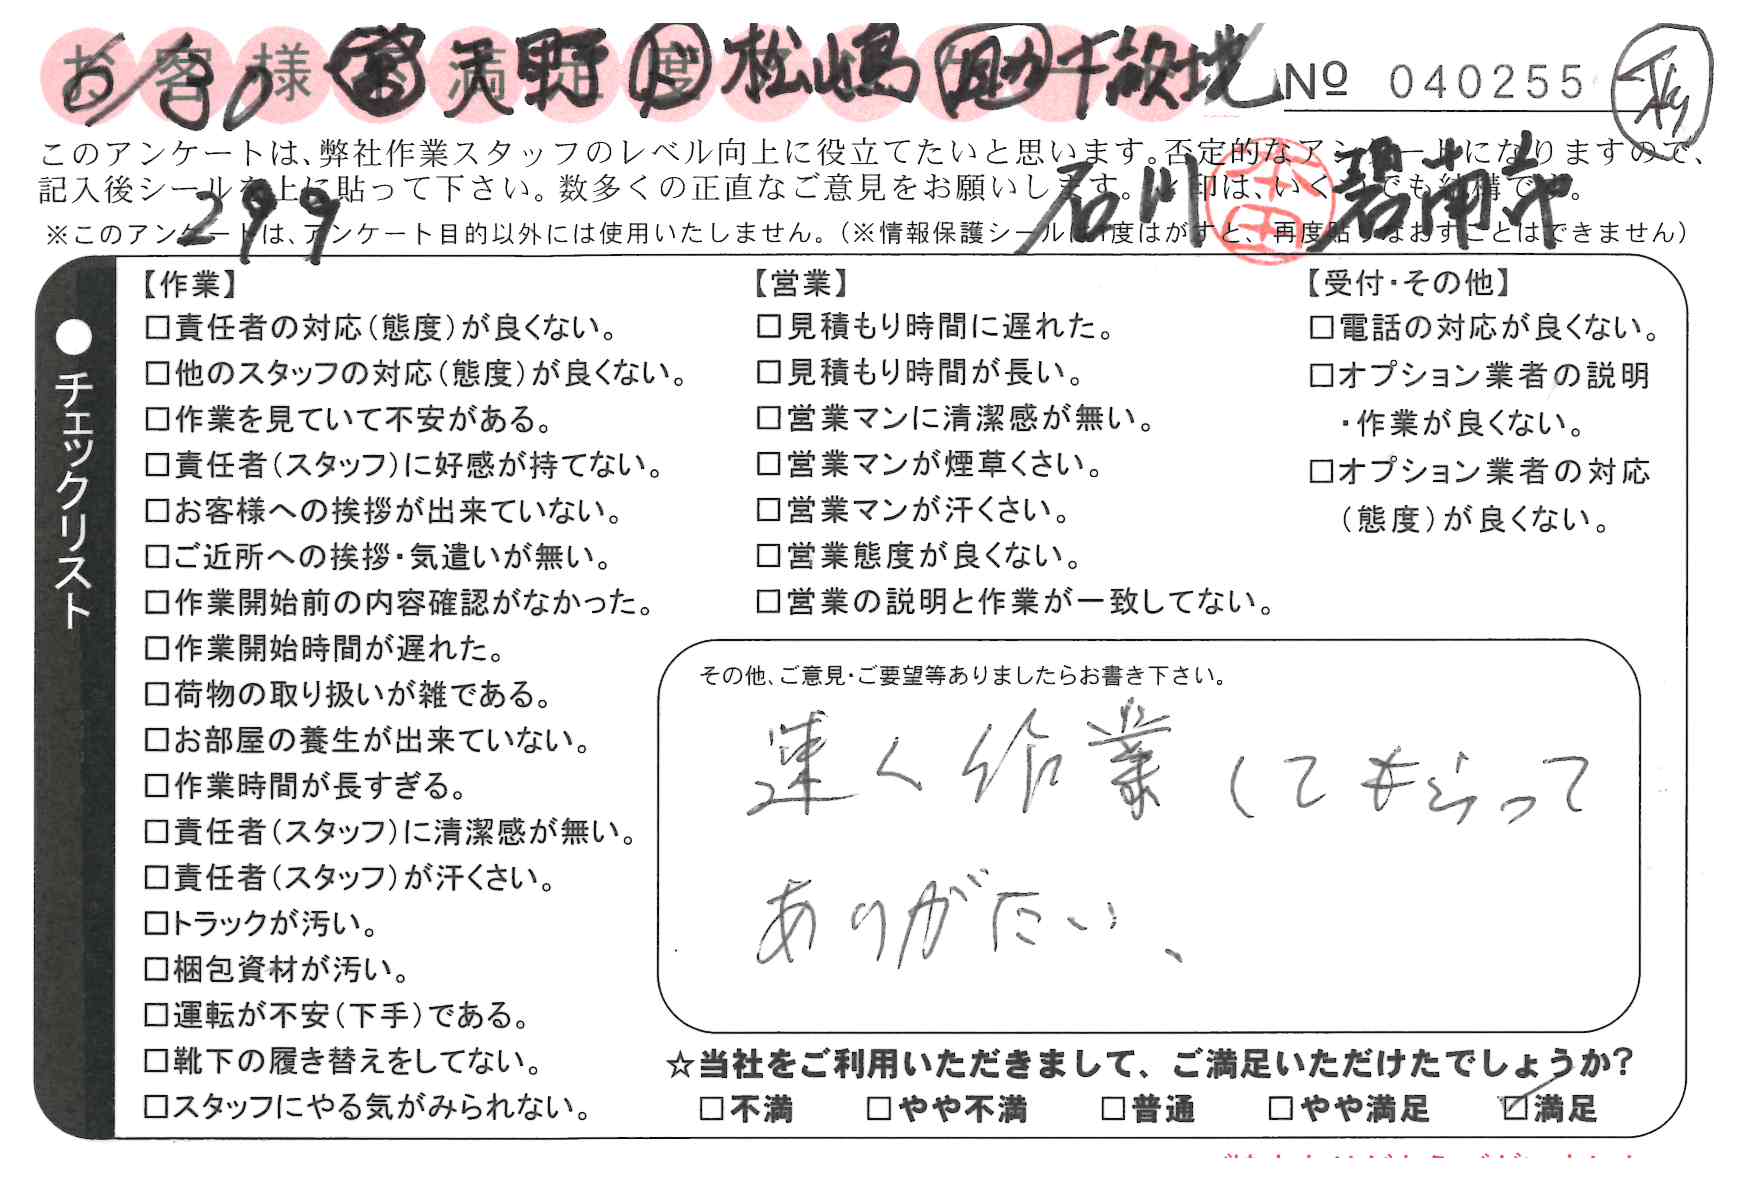 お客様満足度アンケート
5/30 営 天野 ド 松嶋 助 千敷地
Nº 040255
このアンケートは、弊社作業スタッフのレベル向上に役立てたいと思います。否定的なアンケートになりますので、
記入後シールを上に貼って下さい。数多くの正直なご意見をお願いします。レ印は、いくつでも結構です。
299 石川 本田 碧南市
※このアンケートは、アンケート目的以外には使用いたしません。(※情報保護シールは1度はがすと、再度貼りなおすことはできません)
●チェックリスト
【作業】
□責任者の対応(態度)が良くない。
□他のスタッフの対応(態度)が良くない。
□作業を見ていて不安がある。
□責任者(スタッフ)に好感が持てない。
□お客様への挨拶が出来ていない。
□ご近所への挨拶・気遣いが無い。
□作業開始前の内容確認がなかった。
□作業開始時間が遅れた。
□荷物の取り扱いが雑である。
□お部屋の養生が出来ていない。
□作業時間が長すぎる。
□責任者(スタッフ)に清潔感が無い。
□責任者(スタッフ)が汗くさい。
□トラックが汚い。
□梱包資材が汚い。
□運転が不安(下手)である。
□靴下の履き替えをしてない。
□スタッフにやる気がみられない。
【営業】
□見積もり時間に遅れた。
□見積もり時間が長い。
□営業マンに清潔感が無い。
□営業マンが煙草くさい。
□営業マンが汗くさい。
□営業態度が良くない。
□営業の説明と作業が一致してない。
【受付・その他】
□電話の対応が良くない。
□オプション業者の説明
・作業が良くない。
□オプション業者の対応
(態度)が良くない。
その他、ご意見・ご要望等ありましたらお書き下さい。
速く作業してもらって
ありがたい、
☆当社をご利用いただきまして、ご満足いただけたでしょうか?
□不満 □やや不満 □普通 □やや満足 ☑満足